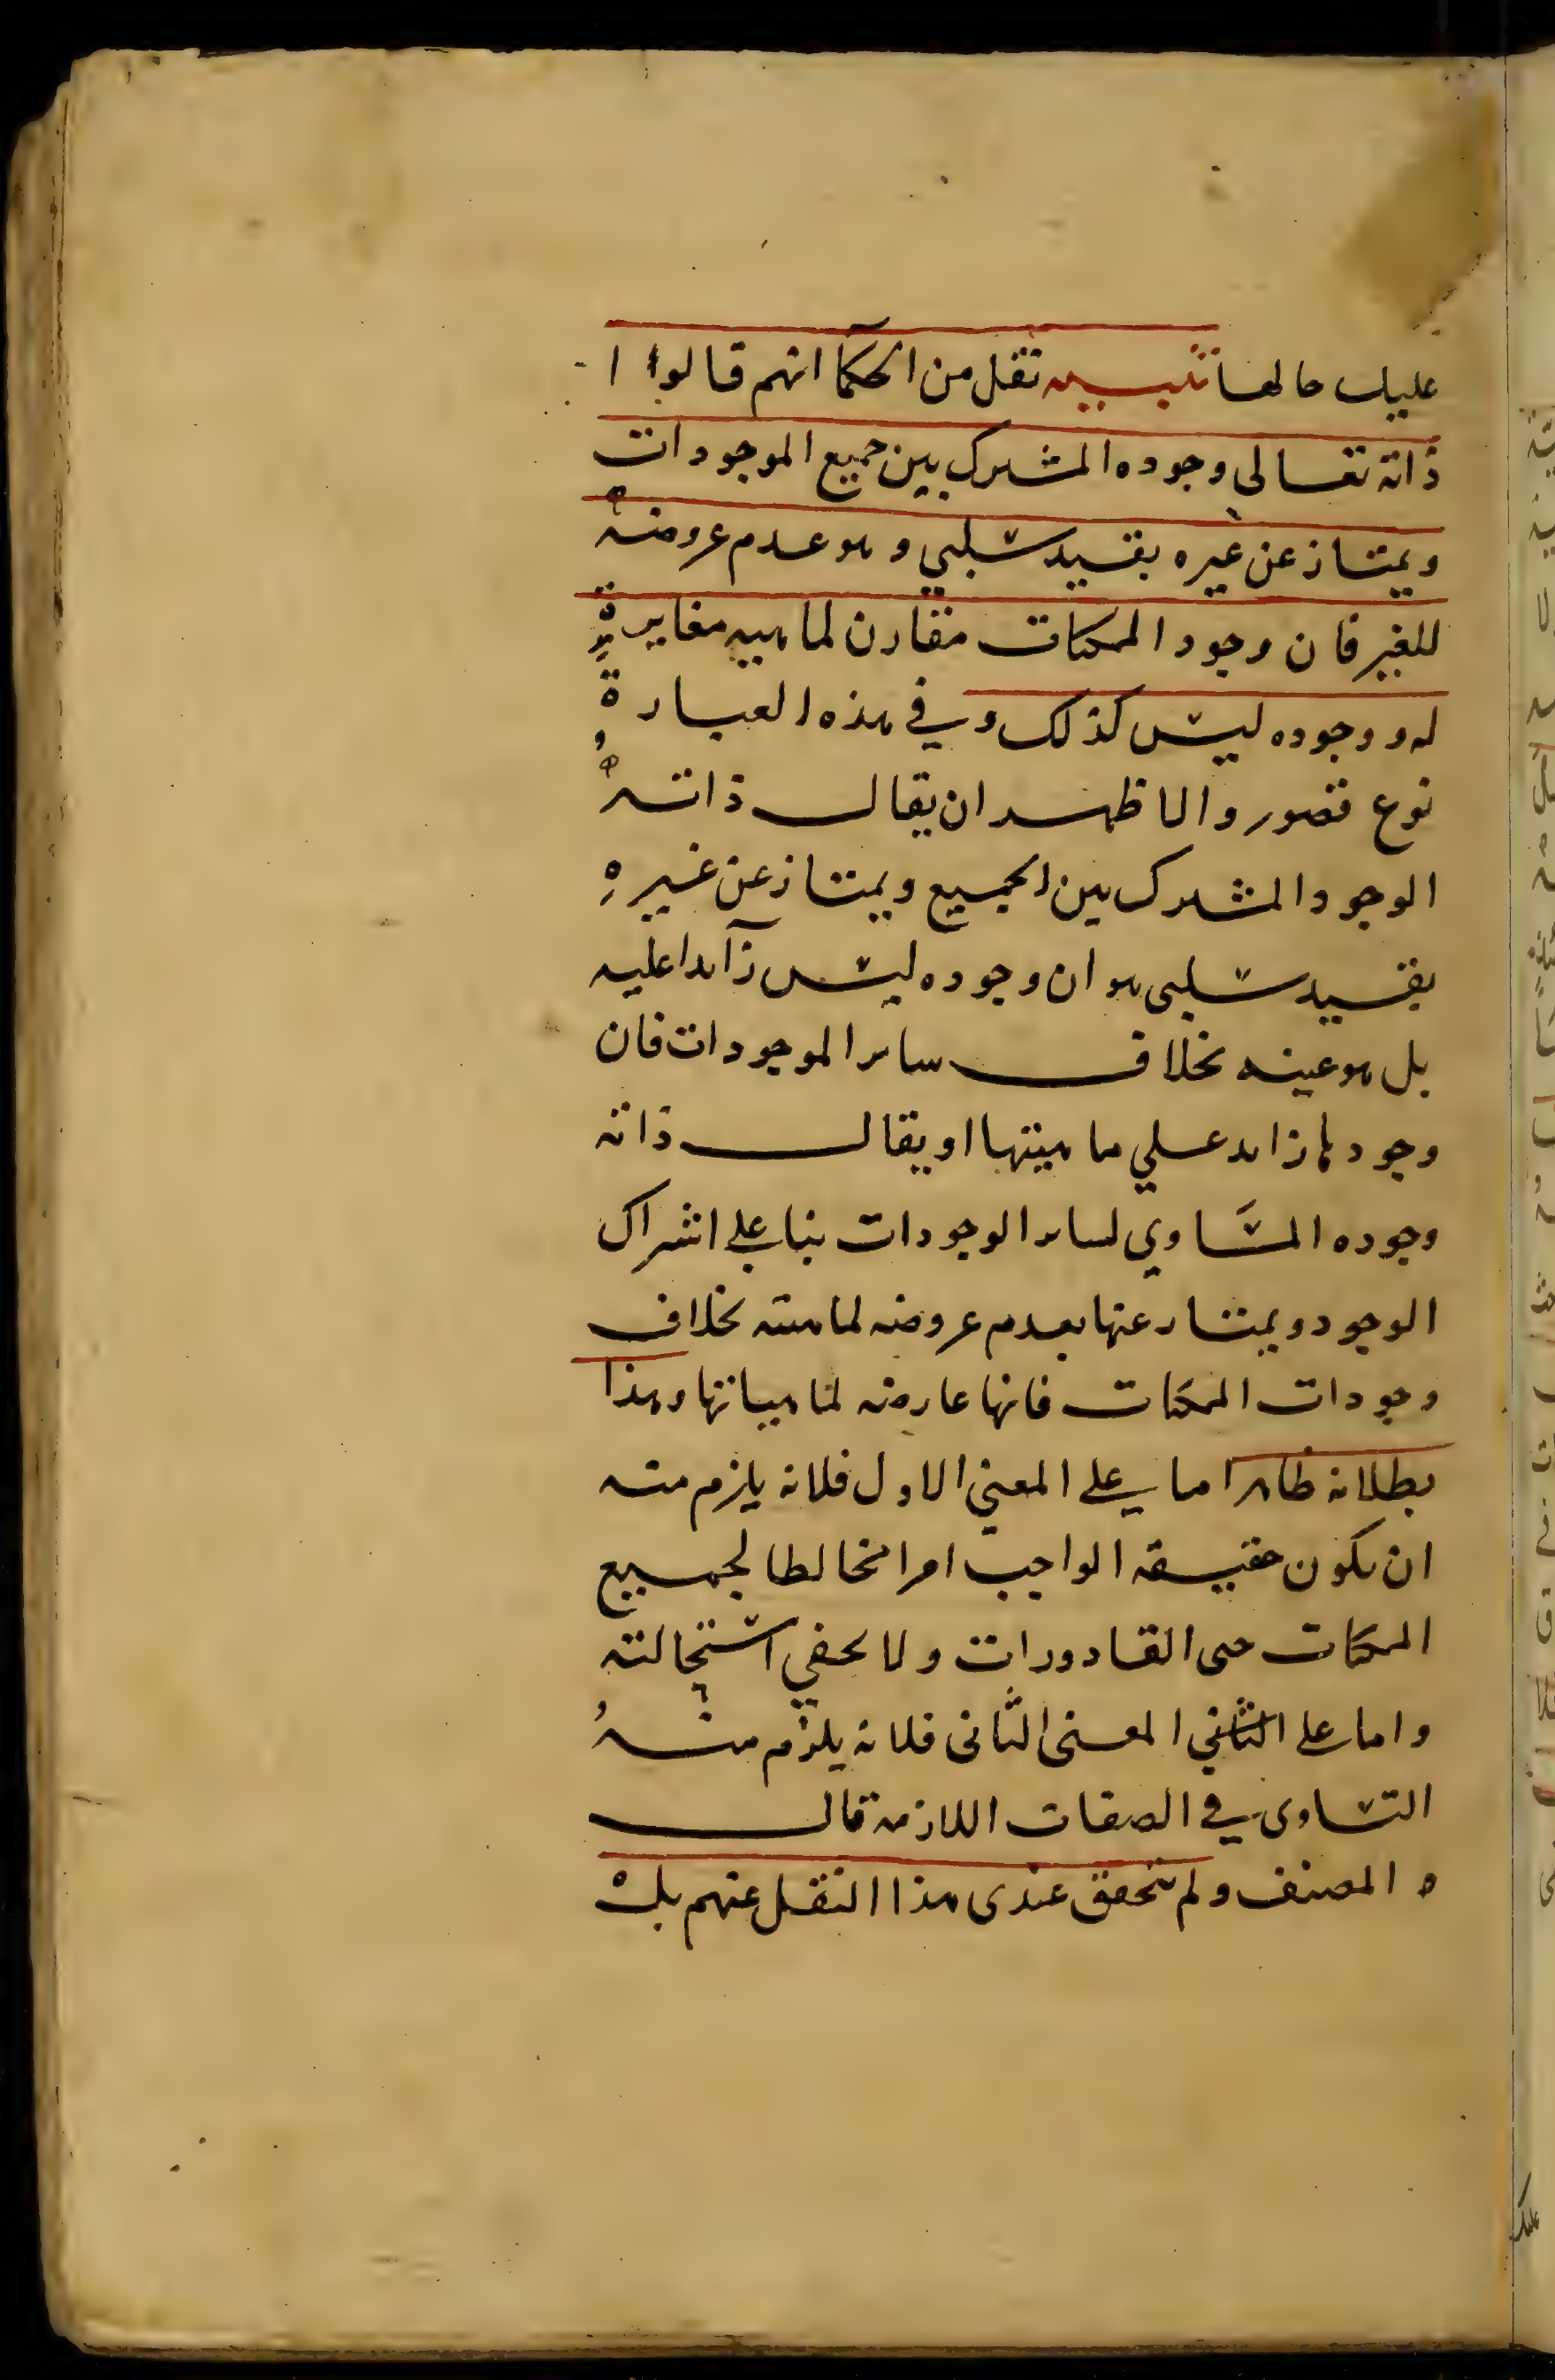 عليك حالها تنبيه نقل من الحكما انهم قالوا ا
ذاته تعالى وجوده المشترك بين جميع الموجودات
ويمتاز عن غيره بقيد سلبي وهو عدم عروضه
للغير فان وجود الممكنات مقارن لماهيه مغايرةٍ
له ووجوده ليس كذلك وفي هذه العبارة
نوع قصور والاظهر ان يقال ذاتهُ
الوجود المشترك بين الجميع ويمتاز عن غيرهِ
بقيد سلبى هو ان وجوده ليس زآيدا عليه
بل هو عينه بخلاف ساير الموجودات فان
وجودها زايد على ماهيتها او يقال ذاته
وجوده المسَاوي لساير الوجودات بنا على اشتراك
الوجود ويمتاز عنها بعدم عروضه لماهيته بخلاف
وجودات الممكنات فانها عارضه لماهياتها وهذا
بطلانه ظاهر اما على المعني الاول فلانه يلزم منه
ان يكون حقيقه الواجب امرا مخالطا لجميع
الممكنات حتى القاذورات ولا يخفي استحالته
واما على الثاني المعنى الثانى فلانه يلزم منهُ
التساوى في الصفات اللازمة قال
ه المصنف ولم يتحقق عندى هذا النقل عنهم بل